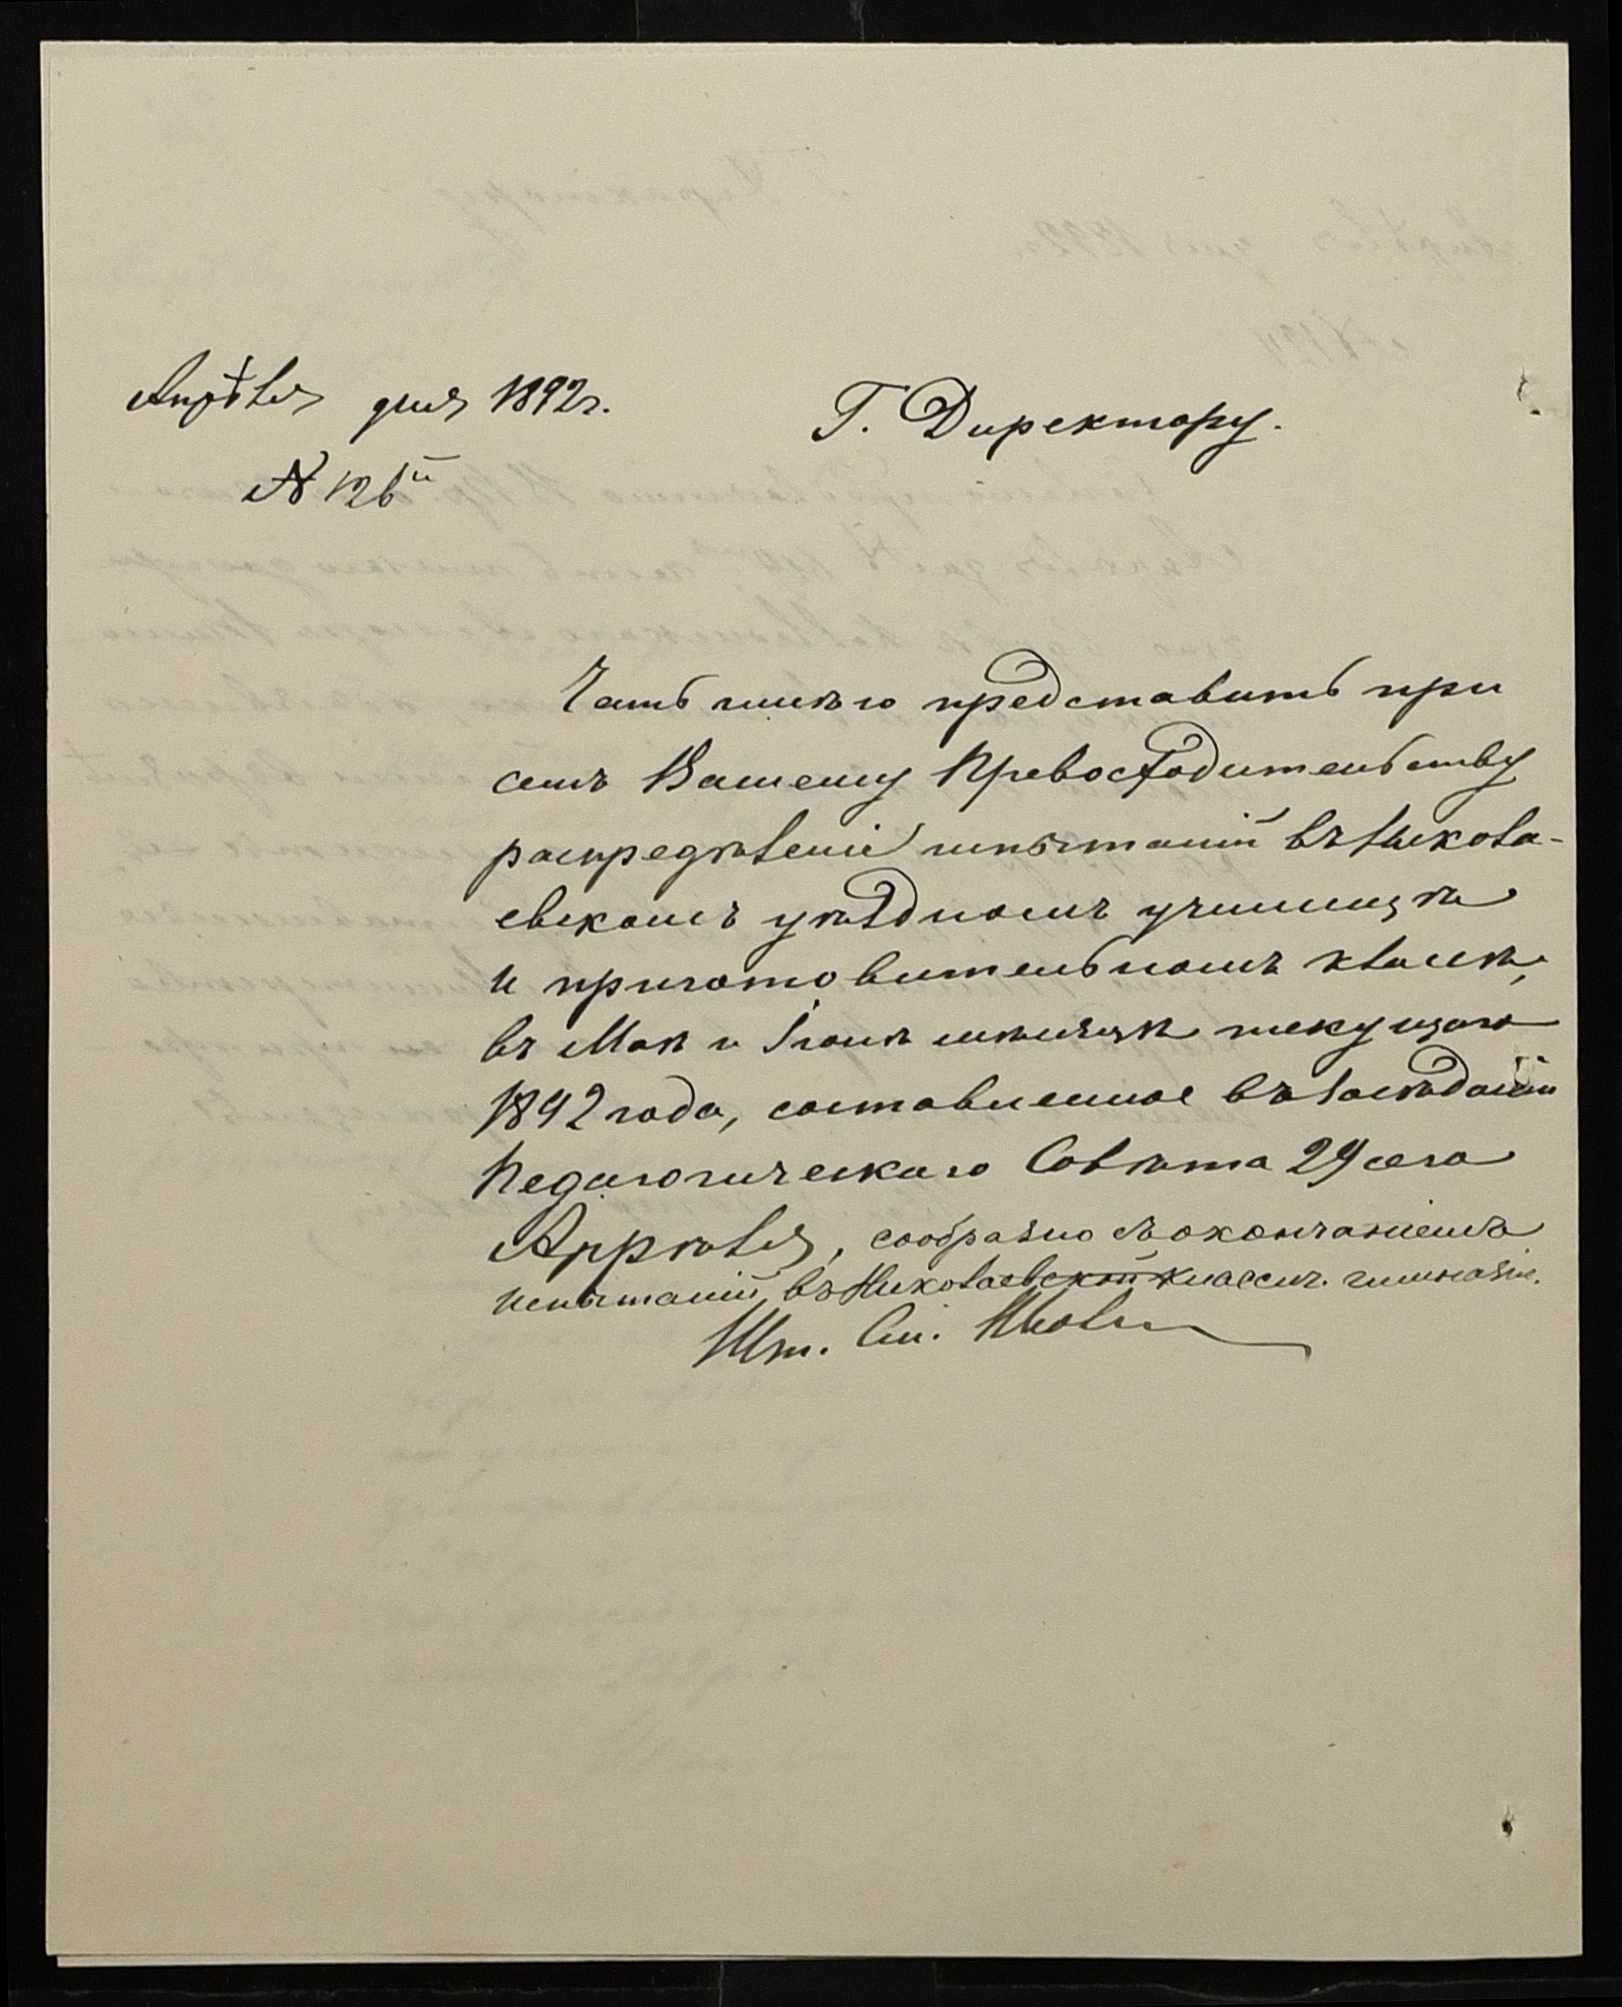 Апрѣля дня 1892 г.
Г. Директору.
№ 126й
Честь имѣю представить при
семъ Вашему Превосходительству
распредѣленіе испытаній въ Никола-
евскомъ уѣздномъ училищѣ
и приготовительномъ классѣ,
въ Маѣ и Іюнѣ мѣсяцѣ текущаго
1892 года, составленное въ засѣданіи
Педагогическаго Совѣта 29 сего
Апрѣля, сообразно съ окончаніемъ
испытаній въ Николаевской классич. гимназіи.
Шт. См.